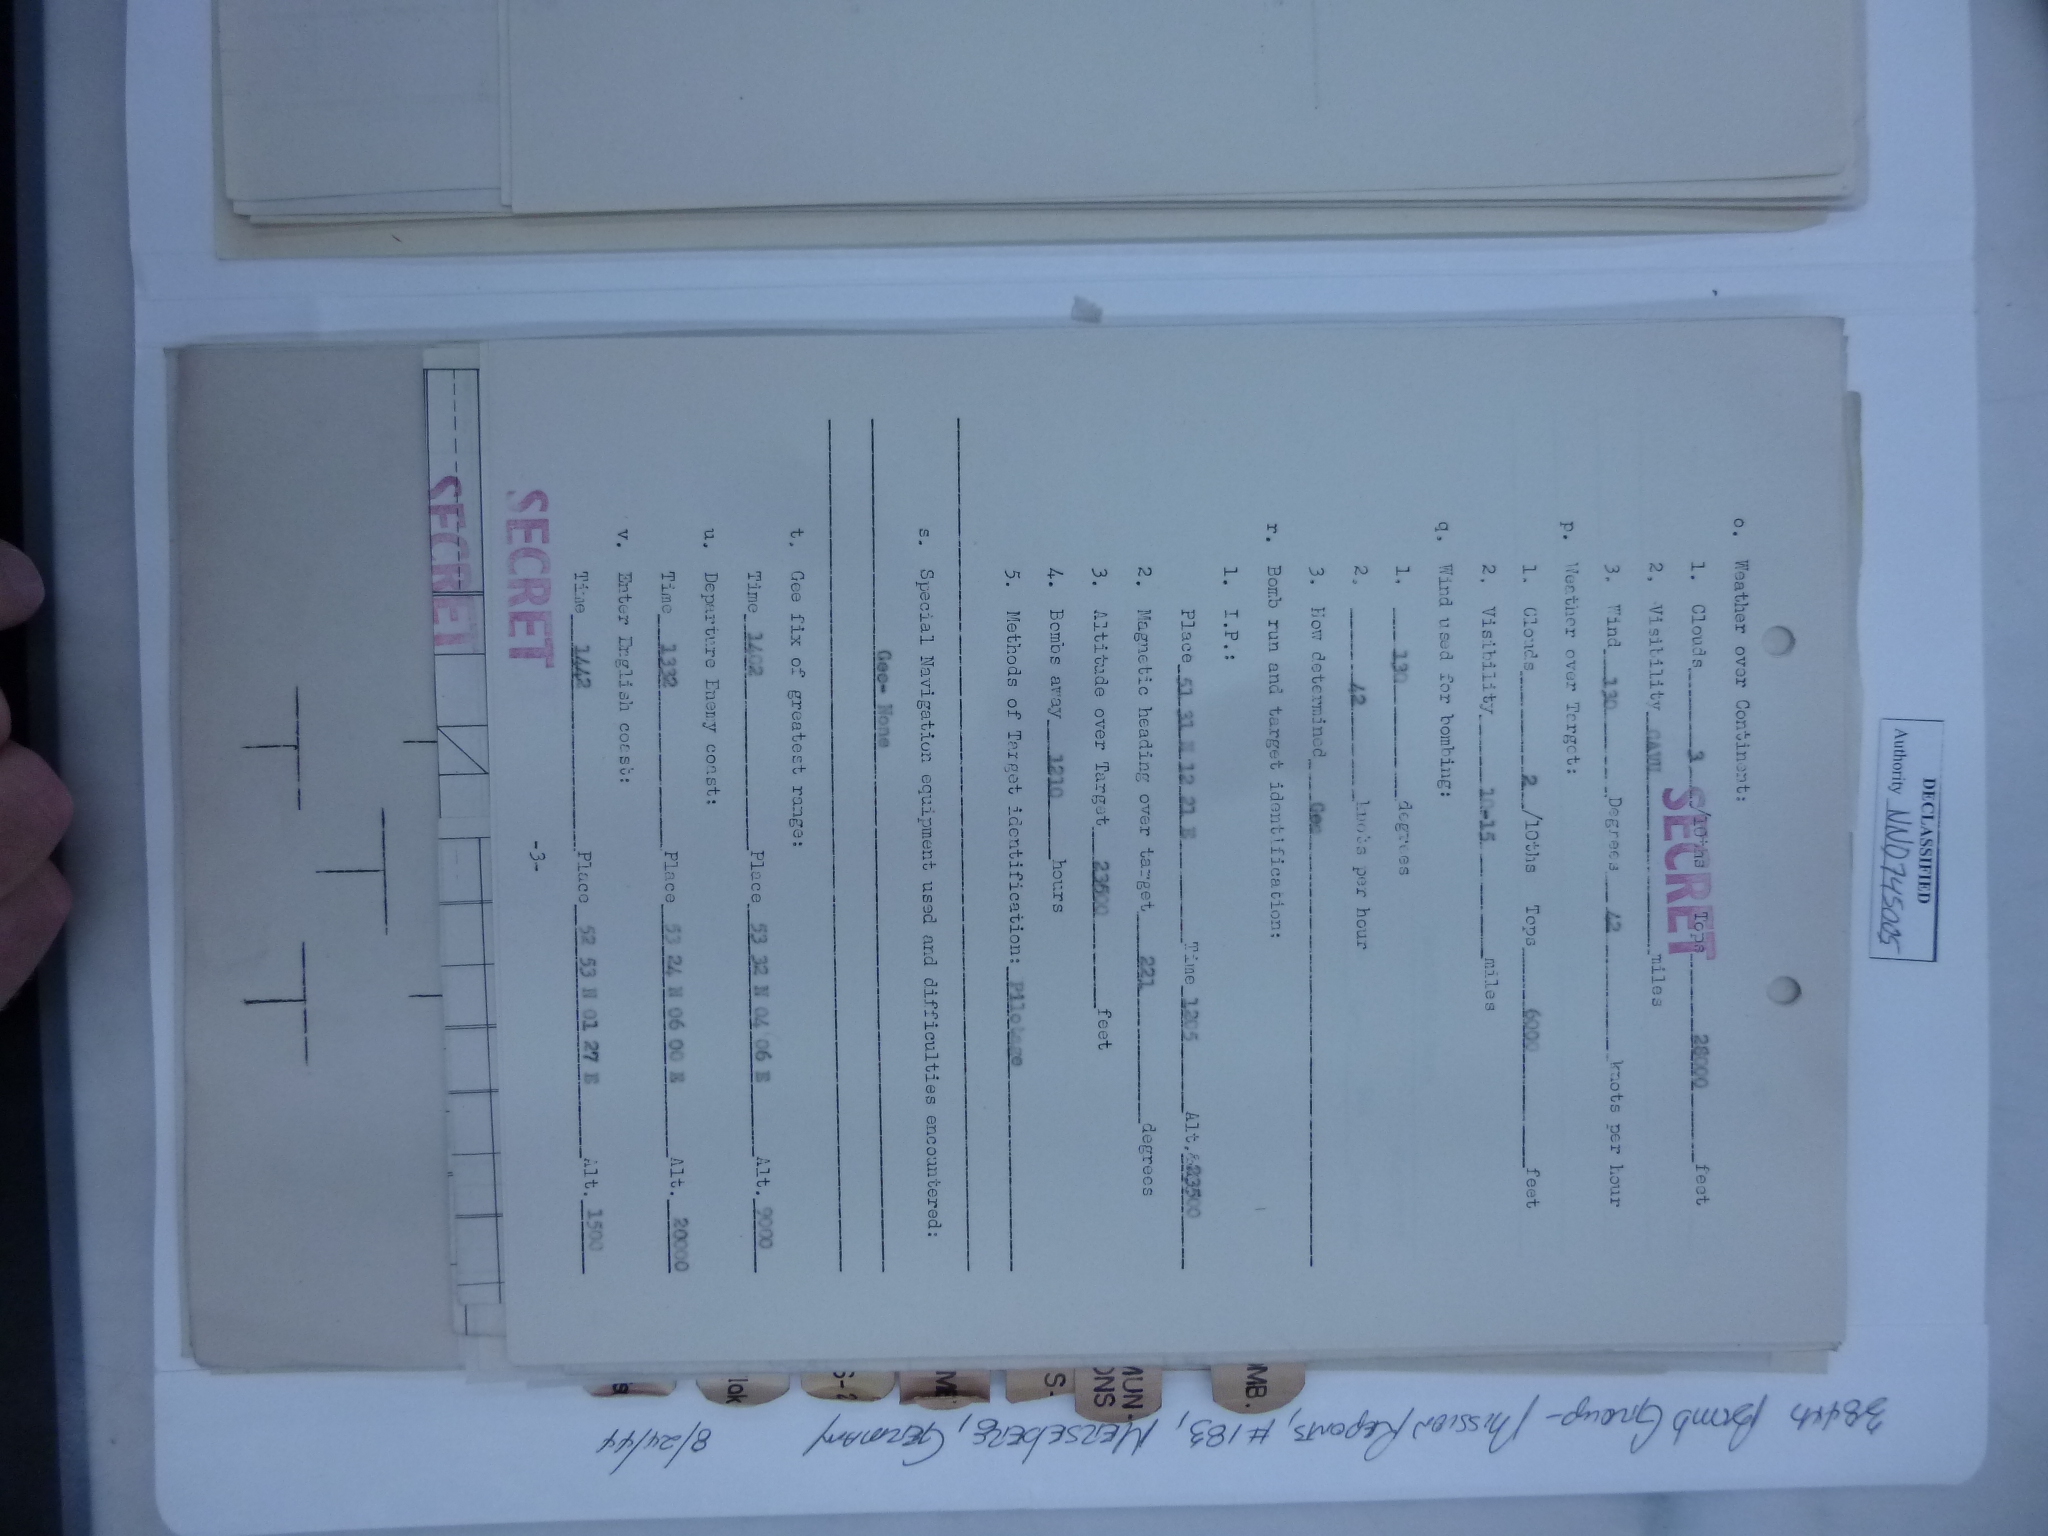 DECLASSIFIED
Authority NND745005
SECRET
o. Weather over Continent:
1. Clouds 3 /10ths Tops 28000 feet
2. Visibility CAVU miles
3. Wind 130 Degrees 42 knots per hour
p. Weather over Target:
1. Clouds 2 /10ths Tops 6000 feet
2. Visibility 10-15 miles
q. Wind used for bombing:
1. 130 degrees
2. 42 knots per hour
3. How determined Gee
r. Bomb run and target identification:
1. I.P.:
Place 51 31 N 12 21 E Time 1205 Alt. 23500
2. Magnetic heading over target 221 degrees
3. Altitude over Target 23500 feet
4. Bombs away 1210 hours
5. Methods of Target identification: Pilotage
s. Special Navigation equipment used and difficulties encountered:
Gee- None
t. Gee fix of greatest range:
Time 1402 Place 53 32 N 04 06 E Alt. 9000
u. Departure Enemy coast:
Time 1332 Place 53 24 N 06 00 E Alt. 20000
v. Enter English coast:
Time 1442 Place 52 53 N 01 27 E Alt. 1500
-3-
SECRET
SECRET
MB.
MUN.
ONS
S-
ME
S-2
lok
s
384th Bomb Group - Mission Reports, #183, Merseberg, Germany
8/24/44